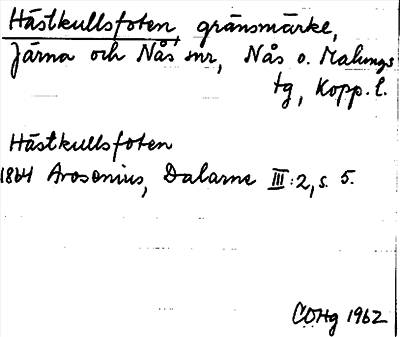 Hästkullsfoten, gränsmärke,
Järna och Nås snr, Nås o. Malungs
tg, Kopp. l.
Hästkullsfoten
1864 Arosenius, Dalarne III:2, s. 5.
COHg 1962